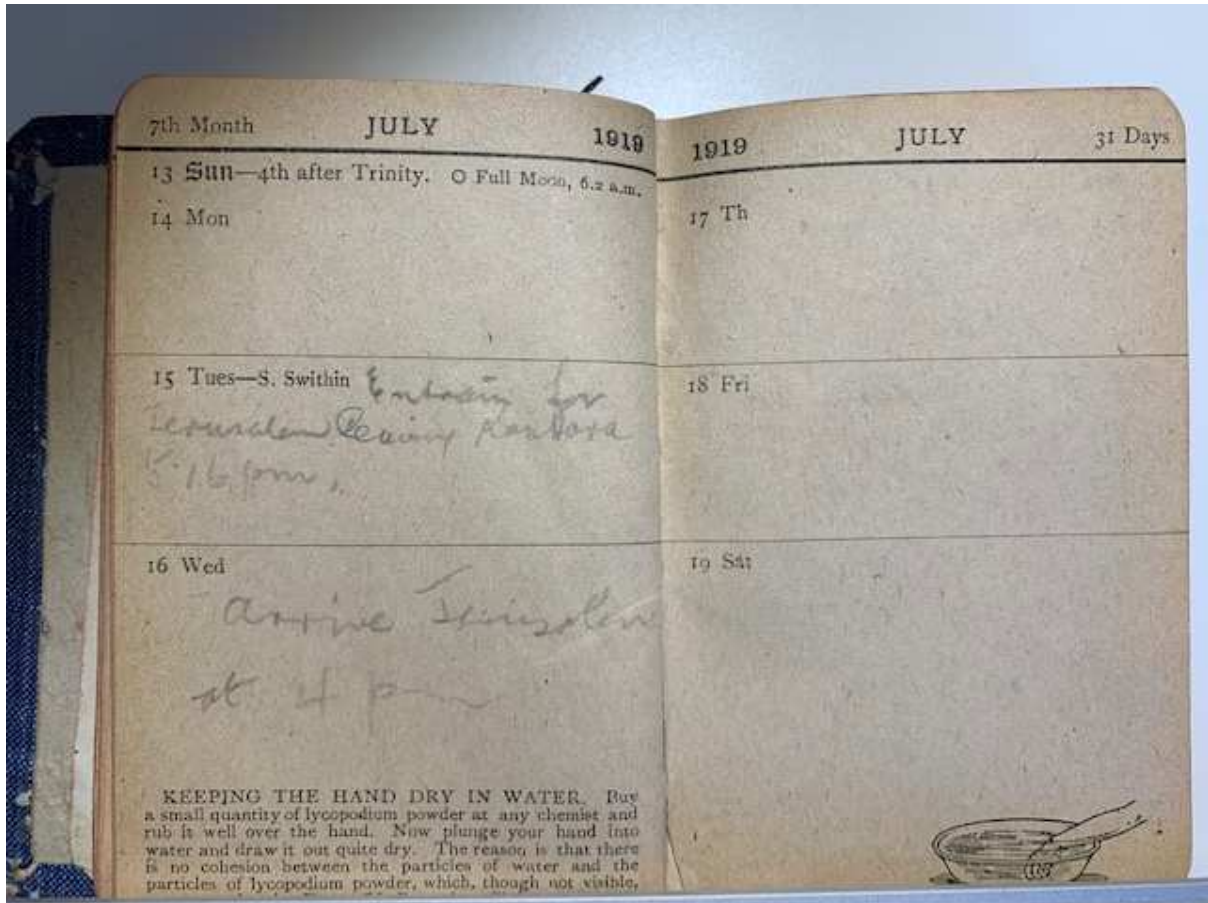 7th Month JULY 1919
13 Sun—4th after Trinity. O Full Moon, 6.2 a.m.
14 Mon
15 Tues—S. Swithin Entrain for
Jerusalem leaving Kantara
5.16 pm.
16 Wed
arrive Jerusalem
at 4 pm
KEEPING THE HAND DRY IN WATER. Buy
a small quantity of lycopodium powder at any chemist and
rub it well over the hand. Now plunge your hand into
water and draw it out quite dry. The reason is that there
is no cohesion between the particles of water and the
particles of lycopodium powder, which, though not visible,
1919 JULY 31 Days
17 Th
18 Fri
19 Sat